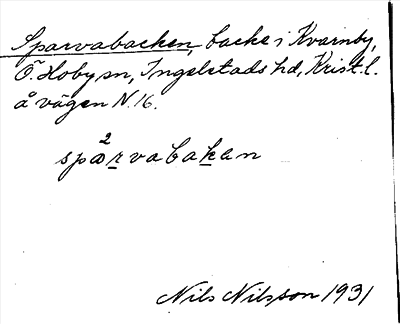 Sparvabacken, backe i Kvarnby,
Ö. Hoby sn, Ingelstads hd, Krist. l.
å vägen N. 16.
2
sparvabakan
Nils Nilsson 1931